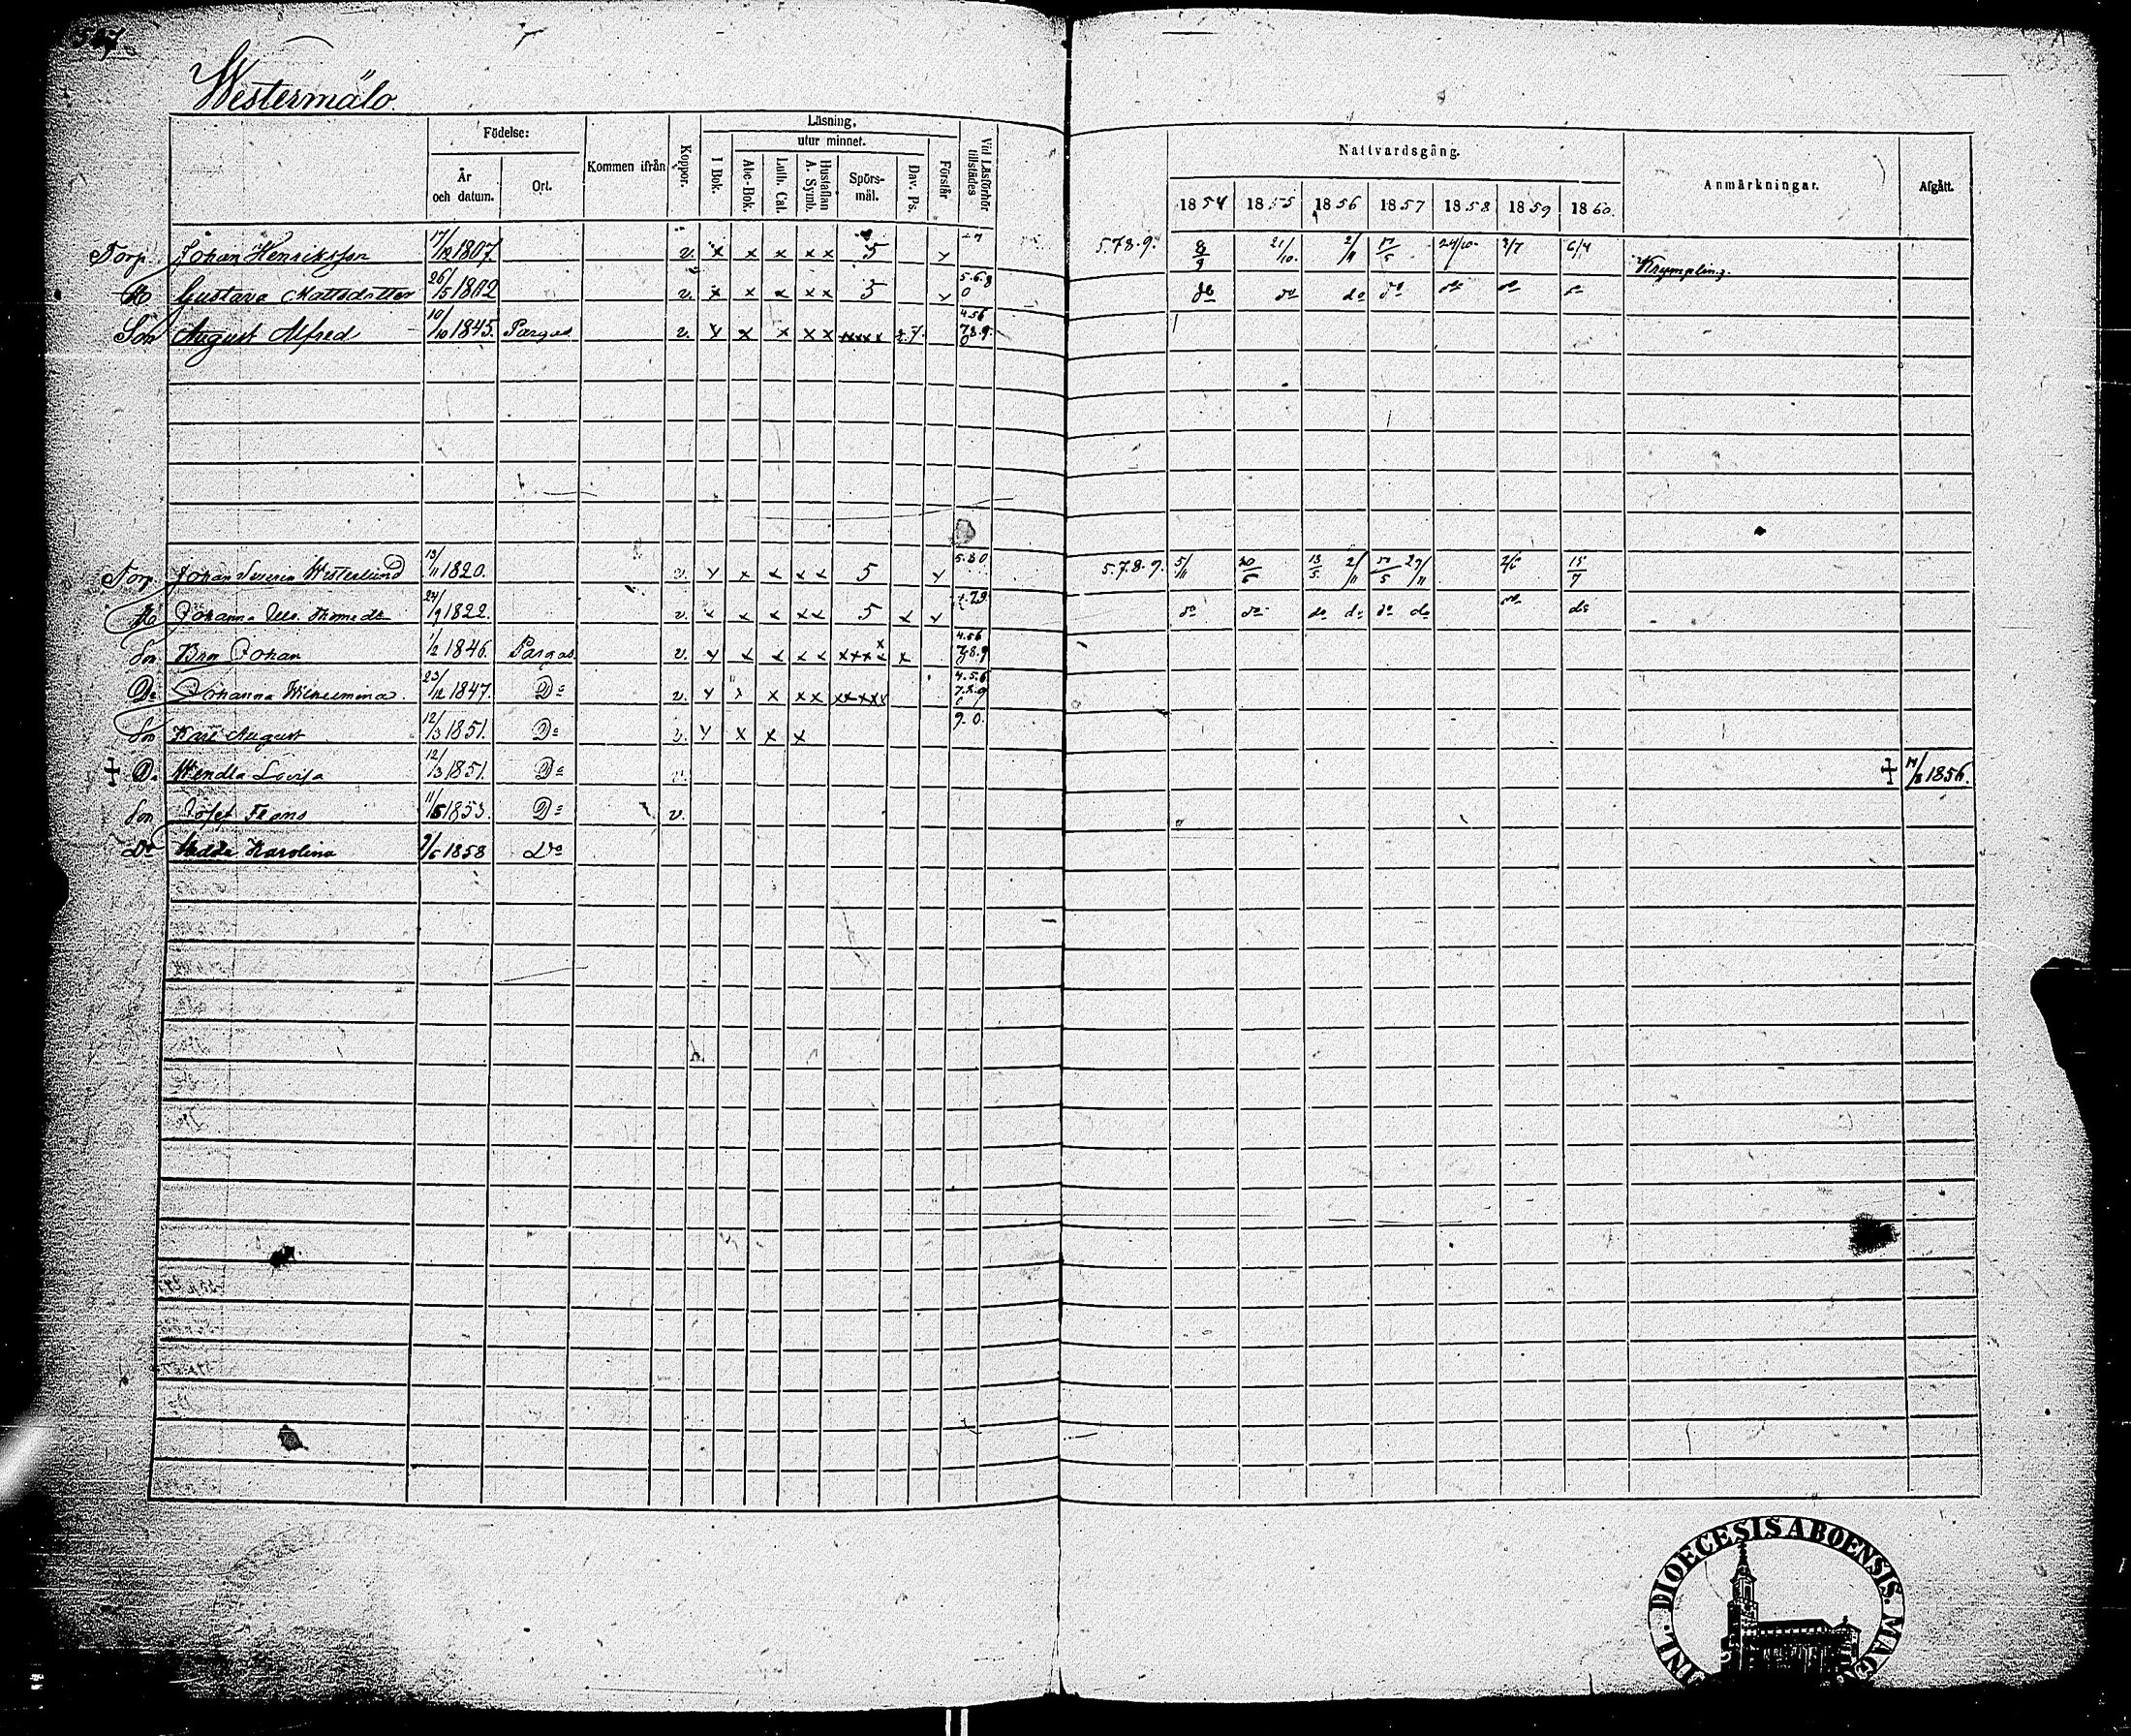 Westermälö.
Födelse:
Läsning.
utur minnet.
År och datum.
Ort.
Kommen ifrån
Koppor.
I Bok.
Abc-Bok.
Luth. Cat.
A. Symb. Hustaflan
Spörs-mål.
Dav. Ps.
Förstår
Vid Läsförhör tillstädes
Nattvardsgång.
1854 1855 1856 1857 1858 1859 1860.
Anmärkningar.
Afgått.
Torp. Johan Henriksson 17/12 1807. v. x x x x x 5 5.7.8.9. 21/10 24/10 2/7 6/4
Krympling.
Gustava Mattsdotter 26/5 1802 v. x x x x x 5 5.6.8 0 do do do do do do
Son August Alfred 10/10 1845. Pargas v. x x x x x xxxx 4 5 6 7.8.9. 0
Torp. Johan Severin Westerlund 13/11 1820. v. x x x x x 5 x 5.8 0 5.7.8.9. 5/11 13/5 2/11 29/11 2/6 15/7
Johanna 24/9 1822. v. x x x x x 5 x x do do do do do do do do
Son Bror Johan 1/2 1846. Pargas v. x x x x x xxxx x 4.5 6 7.8.9
Dr Johanna Wilhelmina. 23/12 1847. Do v. x x x x x xxxxx 4.5.6 7.8.9
Son Karl August 12/3 1851. Do v. x x x x 9. 0.
† Dr Wendla Lovisa 12/3 1851. Do v. † 1856.
Son Josef Frans 11/5 1853. Do v.
Dr Hedda Karolina 9/6 1858 Do
DIOECESIS ABOENSIS. MAG